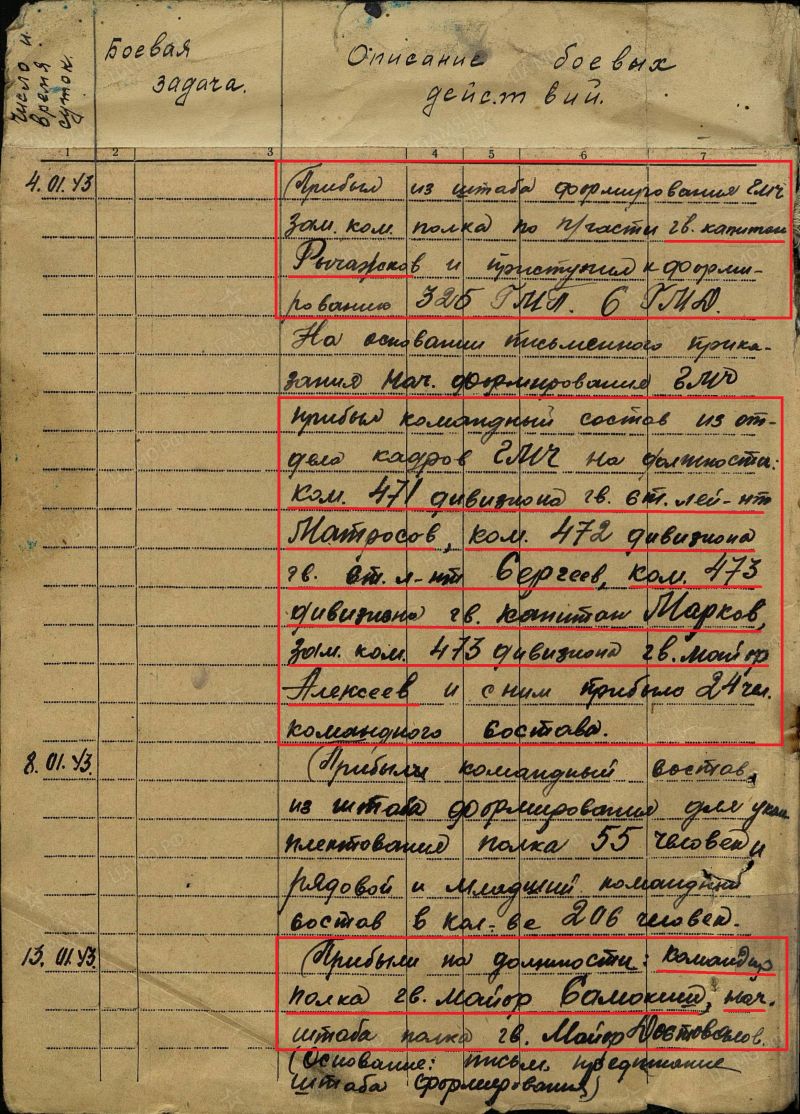 Число и
время
суток.
Боевая
задача.
Описание боевых
действий.
1 2 3 4 5 6 7
4.01.43 Прибыл из штаба формирования ГМЧ
зам. ком. полка по п/части гв. капитан
Рычажков и приступил к форми-
рованию 325 ГМП. 6 ГМД.
На основании письменного прика-
зания нач. формирование ГМЧ
прибыл командный состав из от-
дела кадров ГМЧ на должности:
ком. 471 дивизиона гв. ст. лей-нт
Матросов, ком. 472 дивизиона
гв. ст. л-нт Сергеев, ком. 473
дивизиона гв. капитан Марков,
зам. ком. 473 дивизиона гв. майор
Алексеев и с ним прибыло 24 чел.
командного состава.
8.01.43. Прибыли командный состав,
из штаба формирования для уком
плектование полка 55 человек и
рядовой и младший командный
состав в кол-ве 206 человек.
13.01.43. Прибыли на должности: командир
полка гв. майор Самокиш, нач.
штаба полка гв. Майор
(Основание: письм.
штаба формирования)